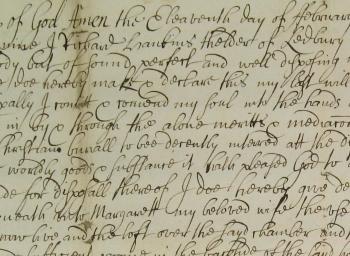 of God Amen the Eleaventh day of ffebruary
I Richard Hankins thelder of Ledbury
body but of sound perfect and well disposing
I doe hereby make & declare this my last will
I comitt & comend my soul into the hands
in by & through the alone meritts & mediation
Christian buriall to bee decently interred att the
worldly goods & substance it hath pleased God to
for disposall thereof I doe hereby give
unto Margarett my beloved wife the use
now live and the loft over the sayd chamber and